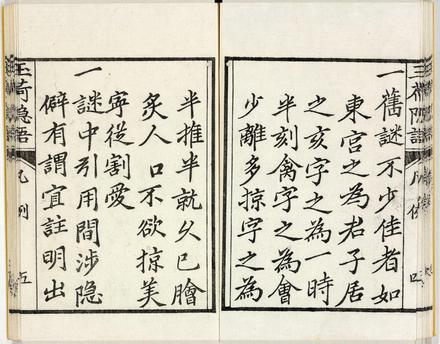 一舊謎不少佳者如
東宫之為君子居
之亥字之為一時
半刻禽字之為會
少離多掠字之為
半推半就久已膾
炙人口不欲掠美
寧從割愛
一謎中引用間涉隐
僻有謂宜註明出
玉荷隐語 凡例 五